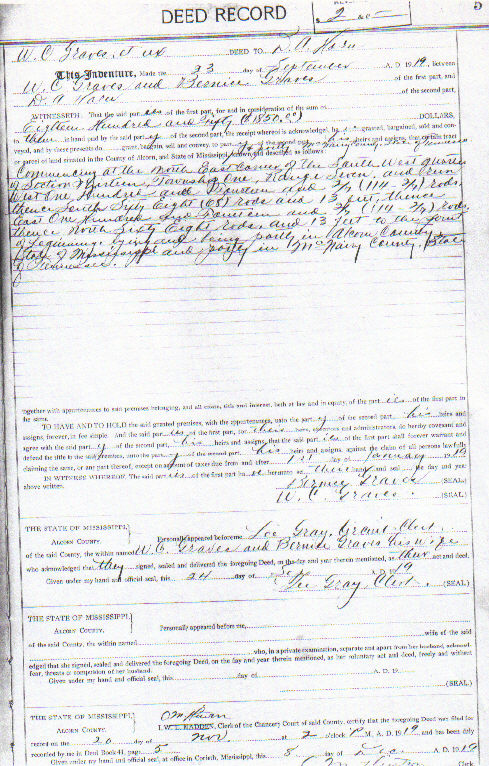 DEED RECORD
2
5
W. C. Graves, et ux DEED TO D. A. Harn
This Indenture, Made the 23 day of September A. D. 1919, Between
W C Graves and Bernice Graves of the first part, and
D. A. Harn of the second part,
WITNESSETH: That the said part ies of the first part, for and in consideration of the sum of
Eighteen Hundred and Fifty ($1850.00) DOLLARS,
them in hand paid by the said part y of the second part, the receipt whereof is acknowledged, ha granted, bargained, sold and con-
veyed, and by these presents do grant, bargain, sell and convey, to part y of the second part his heirs and assigns, that certain tract
or parcel of land situated in the County of Alcorn, and State of Mississippi, known and described as follows:
Commencing at the North East Corner of the South West quarter
of Section Township One Range Seven, and run
West One Hundred and Fourteen and 2/7 (114 2/7) rods,
thence South Sixty Eight (68) rods and 13 feet, thence
East One Hundred and Fourteen and 2/7 (114 2/7) rods
thence North Sixty Eight rods, and 13 feet to the point
of beginning. Lying and being partly in Alcorn County
State of Mississippi and partly in McNairy County, State
of Tennessee.
together with appurtenances to said premises belonging, and all estate, title and interest, both at law and in equity, of the part ies of the first part in
the same.
TO HAVE AND TO HOLD the said granted premises, with the appurtenances, unto the part y of the second part, his heirs and
assigns, forever, in fee simple. And the said part ies of the first part, for their heirs, executors and administrators, do hereby covenant and
agree with the said part y of the second part, his heirs and assigns, that the said part ies of the first part shall forever warrant and
defend the title to the said premises, unto the part y of the second part, his heirs and assigns, against the claim of all persons lawfully
claiming the same, or any part thereof, except on account of taxes due from and after 1st day of January 1919
IN WITNESS WHEREOF, The said part ies of the first part ha hereunto set their hand and seal the day and year
above written.
Bernice Graves (SEAL)
W. C. Graves (SEAL)
THE STATE OF MISSISSIPPI,
ALCORN COUNTY.
Personally appeared before me Lee Gray, Circuit Clerk
of the said County, the within named W. C. Graves and Bernice Graves his wife
who acknowledged that they signed, sealed and delivered the foregoing Deed, on the day and year therein mentioned, as their act and deed.
Given under my hand and official seal, this 24 day of Sep A. D. 1919
Lee Gray, Clerk (SEAL)
THE STATE OF MISSISSIPPI,
ALCORN COUNTY.
Personally appeared before me,
of the said County, the within named wife of the said
who, in a private examination, separate and apart from her husband, acknowl-
edged that she signed, sealed and delivered the foregoing Deed, on the day and year therein mentioned, as her voluntary act and deed, freely and without
fear, threats or compulsion of her husband.
Given under my hand and official seal, this day of A. D. 19
(SEAL)
THE STATE OF MISSISSIPPI,
ALCORN COUNTY.
I, W. L. MADDEN, Clerk of the Chancery Court of said County, certify that the foregoing Deed was filed for
record on the 20 day of Nov at 2 o'clock P. M., A. D. 1919, and has been duly
recorded by me in Deed Book 41, page 5
Given under my hand and official seal, at office in Corinth, Mississippi, this 8 day of Dec A. D. 1919
Clerk